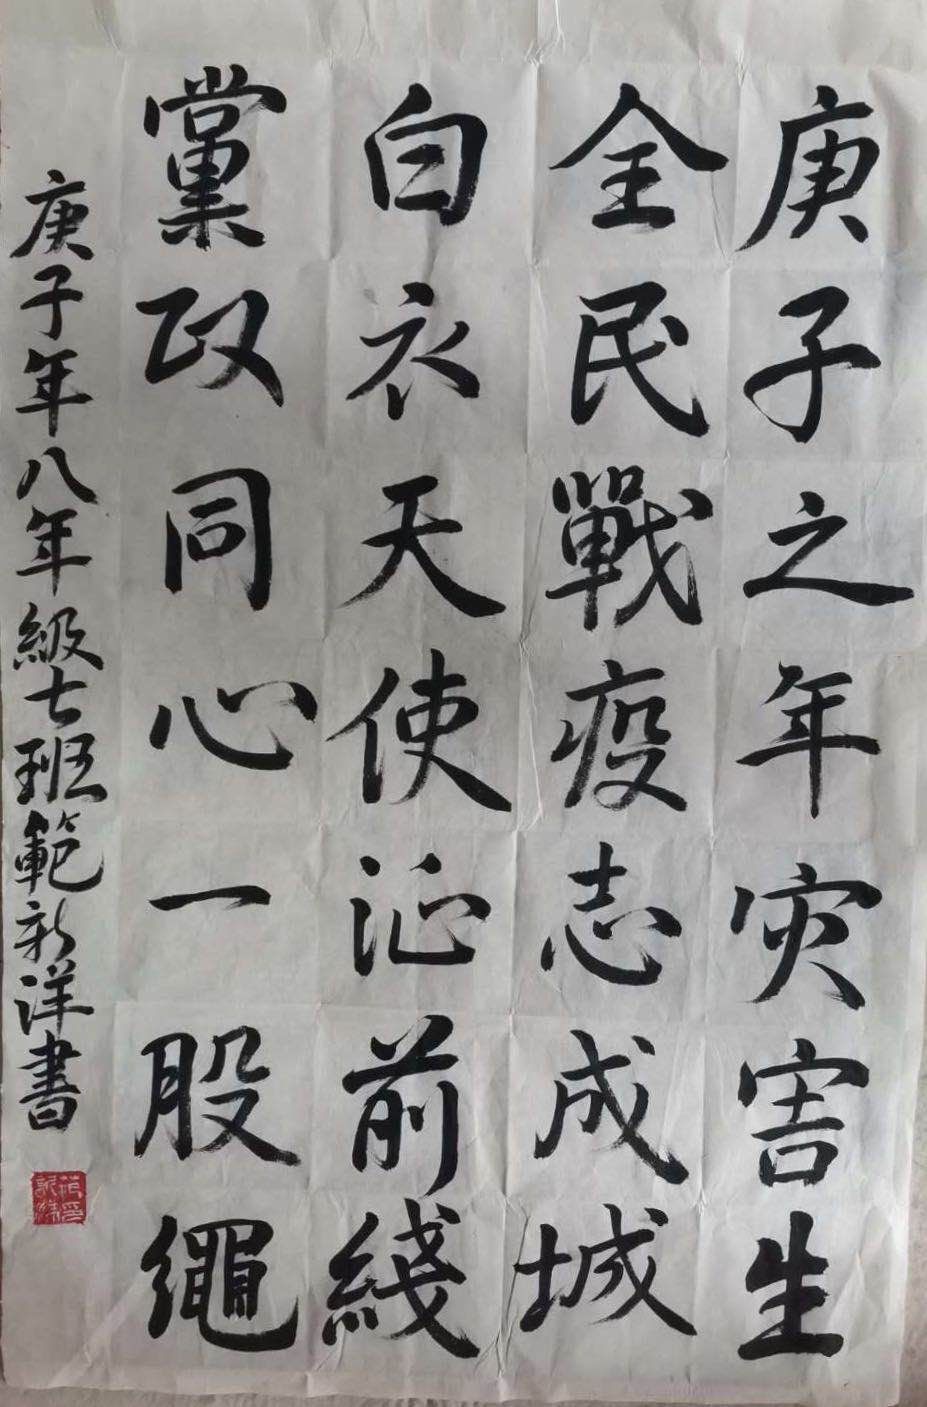 庚子之年灾害生
全民戰疫志成城
白衣天使前綫
黨政同心一股繩
庚子年八年級七班範新洋書
范印
新洋